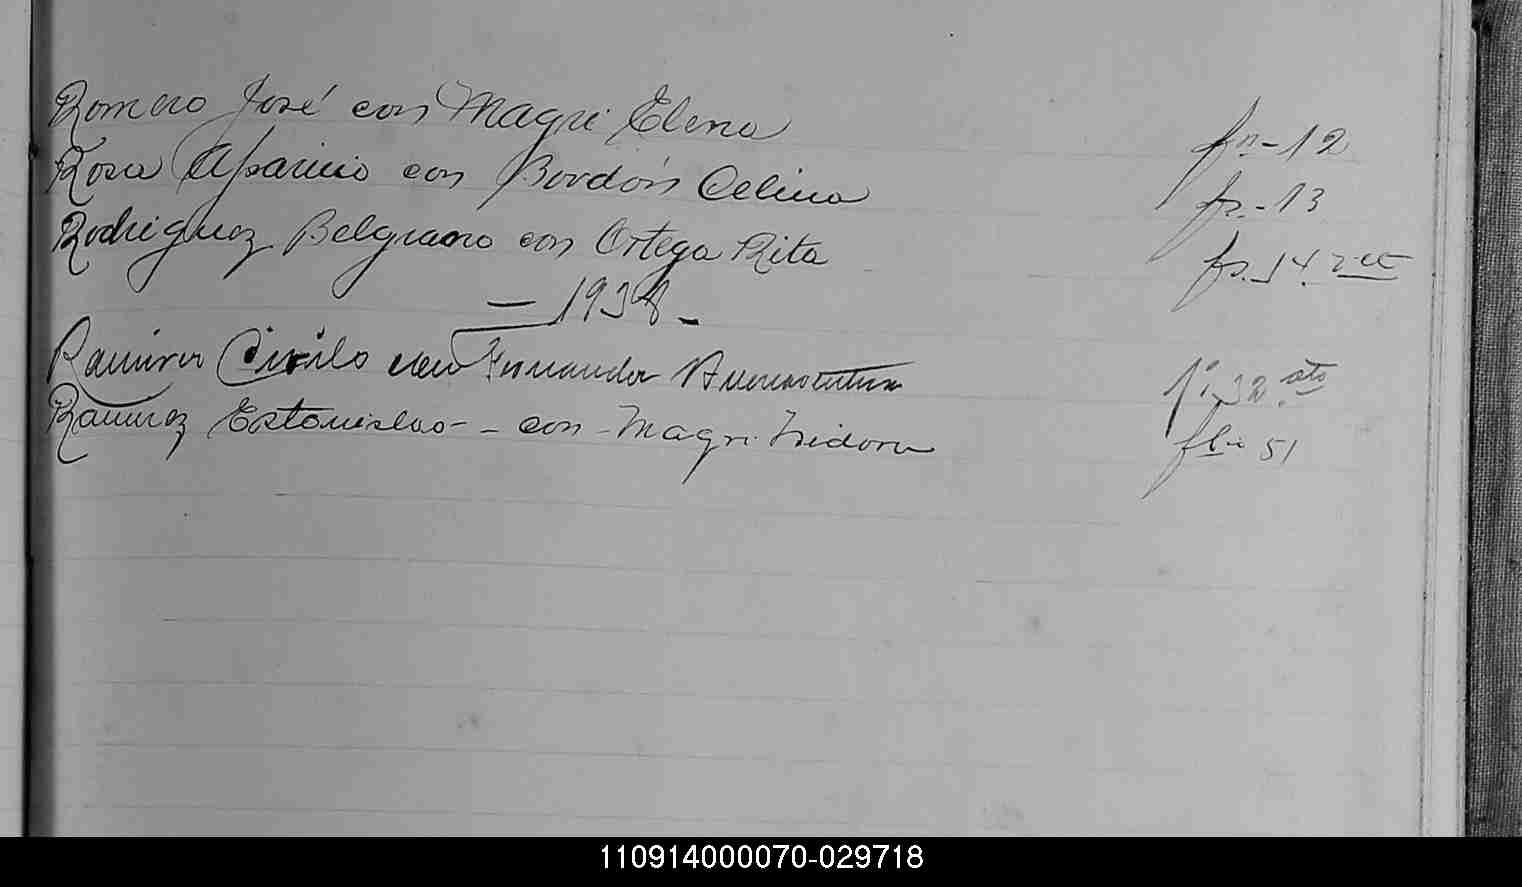 Romero José con Magri Elena fs - 12
Rosa Aparicio con Bordón Celina fs. - 13
Rodriguez Belgrano con Ortega Rita fs. 14.
— 1938 -
Ramirez Cirilo con Fernandez Buenaventura 32 vto
Ramirez Estanislao - - con - Magri Isidora 51
110914000070-029718